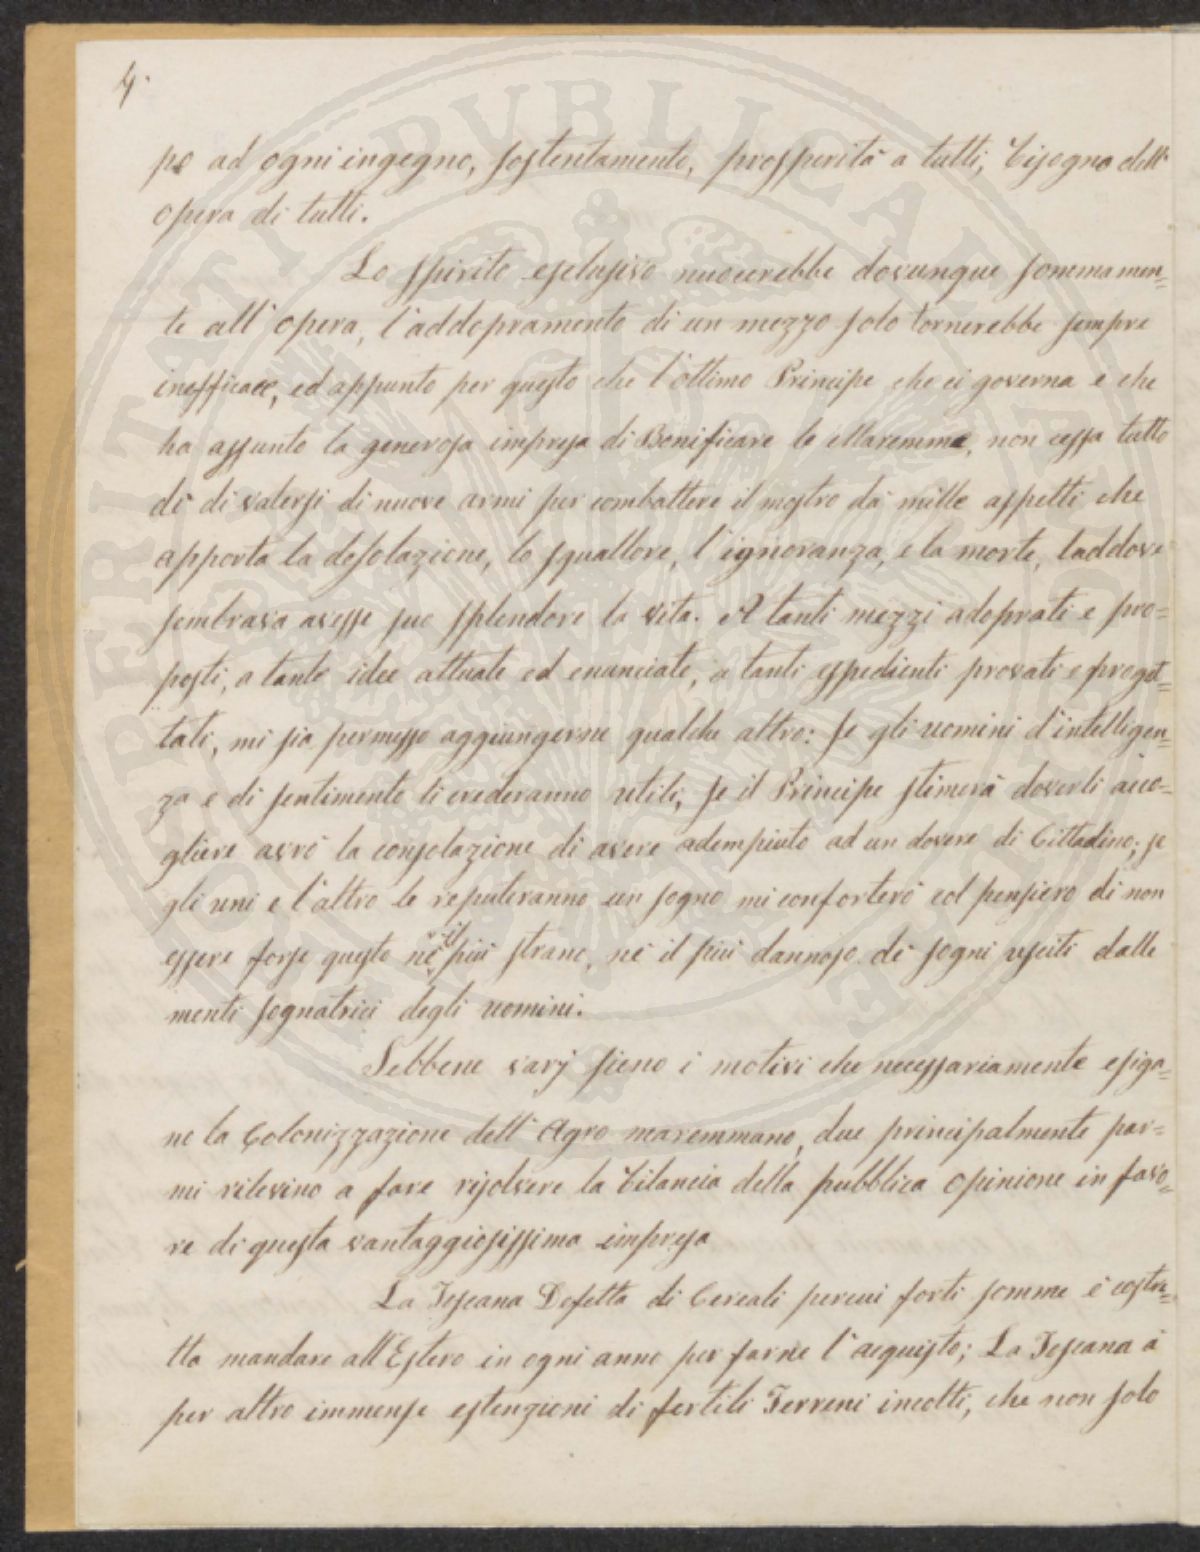 4.
po ad ogni ingegno, sostentamento, prosperità a tutti, bisogno dell'
opera di tutti.
Lo spirito esclusivo nuocerebbe dovunque sommamen=
te all'opera, l'addopramento di un mezzo solo tornerebbe sempre
inefficace, ed appunto per questo che l'ottimo Principe che ci governa e che
ha assunto la generosa impresa di Bonificare le Maremme, non cessa tutto
dì di valersi di nuove armi per combattere il mostro da mille aspetti che
apporta la desolazione, lo squallore, l'ignoranza, e la morte, laddove
sembrava avesse suo splendore la vita. A tanti mezzi adoprati e pro=
posti, a tante idee attuate ed enunciate, a tanti espedienti provati e proget=
tati, mi sia permesso aggiungerne qualche altro: Se gli uomini d'intelligen=
za e di sentimento li crederanno utili, se il Principe stimerà doverli acco=
gliere avrò la consolazione di avere adempiuto ad un dovere di Cittadino; se
gli uni e l'altro le reputeranno un sogno mi conforterò col pensiero di non
essere forse questo nè il più strano, nè il più dannoso di sogni usciti dalle
menti sognatrici degli uomini.
Sebbene varj sieno i motivi che necessariamente esiga=
no la Colonizzazione dell'Agro maremmano, due principalmente par=
mi rilevino a fare risolvere la bilancia della pubblica opinione in favo=
re di questa vantaggiosissima impresa
La Toscana Difetta di Cereali percui forti somme è costre=
tta mandare all'Estero in ogni anno per farne l'acquisto; La Toscana à
per altro immense estenzioni di fertili Terreni incolti, che non solo
COMMUNITATI PUBLICAE PROSPERITATI